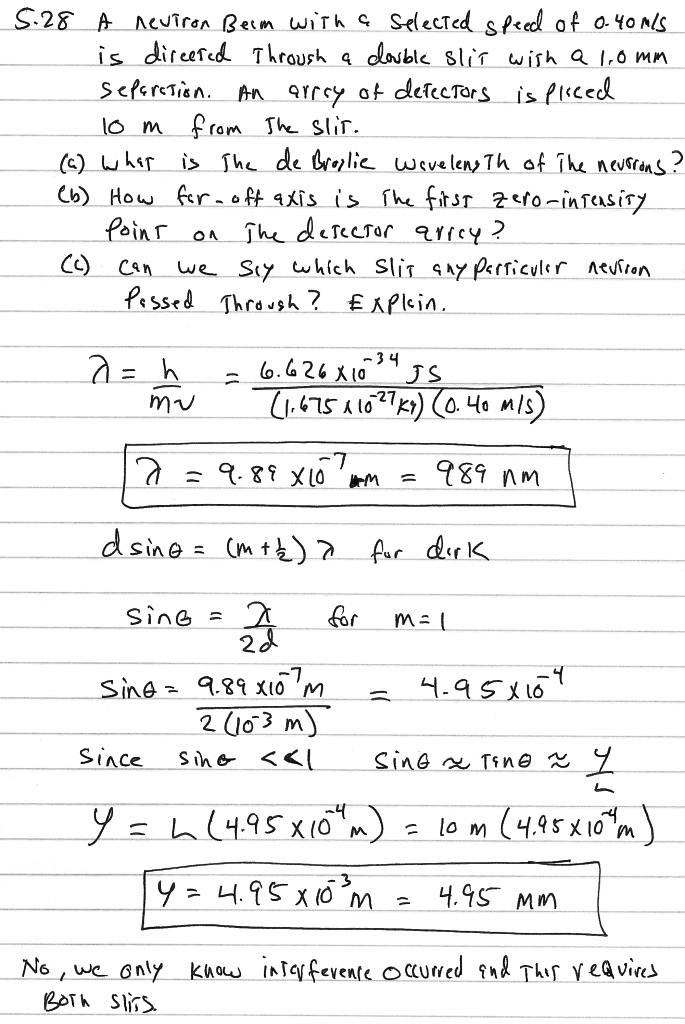 5.28 A neutron Beam with a selected speed of 0.40 m/s
is directed Through a double slit with a 1.0 mm
separation. An array of detectors is placed
10 m from The slit.
(a) What is The de Broglie wavelength of The neutrons?
(b) How far-off axis is The first zero-intensity
Point on The detector array?
(c) Can we say which slit any particular neutron
Passed Through? Explain.
λ = h/mv = 6.626 x10⁻³⁴ JS / (1.675 x10⁻²⁷ Kg) (0.40 m/s)
λ = 9.89 x10⁻⁷ m = 989 nm
d sinθ = (m+½) λ for dark
sinθ = λ/2d for m=1
sinθ = 9.89 x10⁻⁷ m / 2 (10⁻³ m) = 4.95 x10⁻⁴
Since sinθ <<1 sinθ ≈ Tanθ ≈ y/L
y = L (4.95 x10⁻⁴ m) = 10 m (4.95 x10⁻⁴ m)
y = 4.95 x10⁻³ m = 4.95 mm
No, we only know interference occurred and This requires
Both slits.